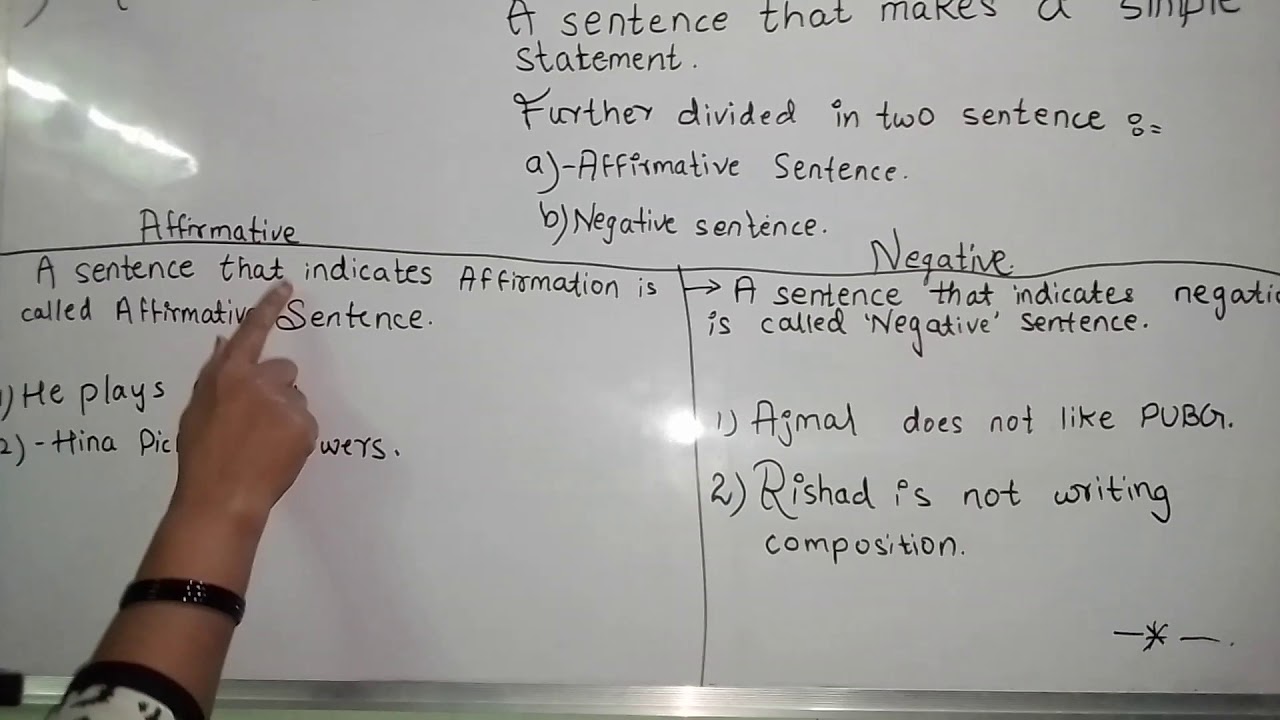 A sentence that makes a simple
statement.
Further divided in two sentence :=
a)-Affirmative Sentence.
b) Negative sentence.
Affirmative
A sentence that indicates Affirmation is
called Affirmative Sentence.
1) He plays
2) - Hina
Negative.
→ A sentence that indicates
is called 'Negative' sentence.
1) Ajmal does not like PUBG.
2) Rishad is not writing
composition.